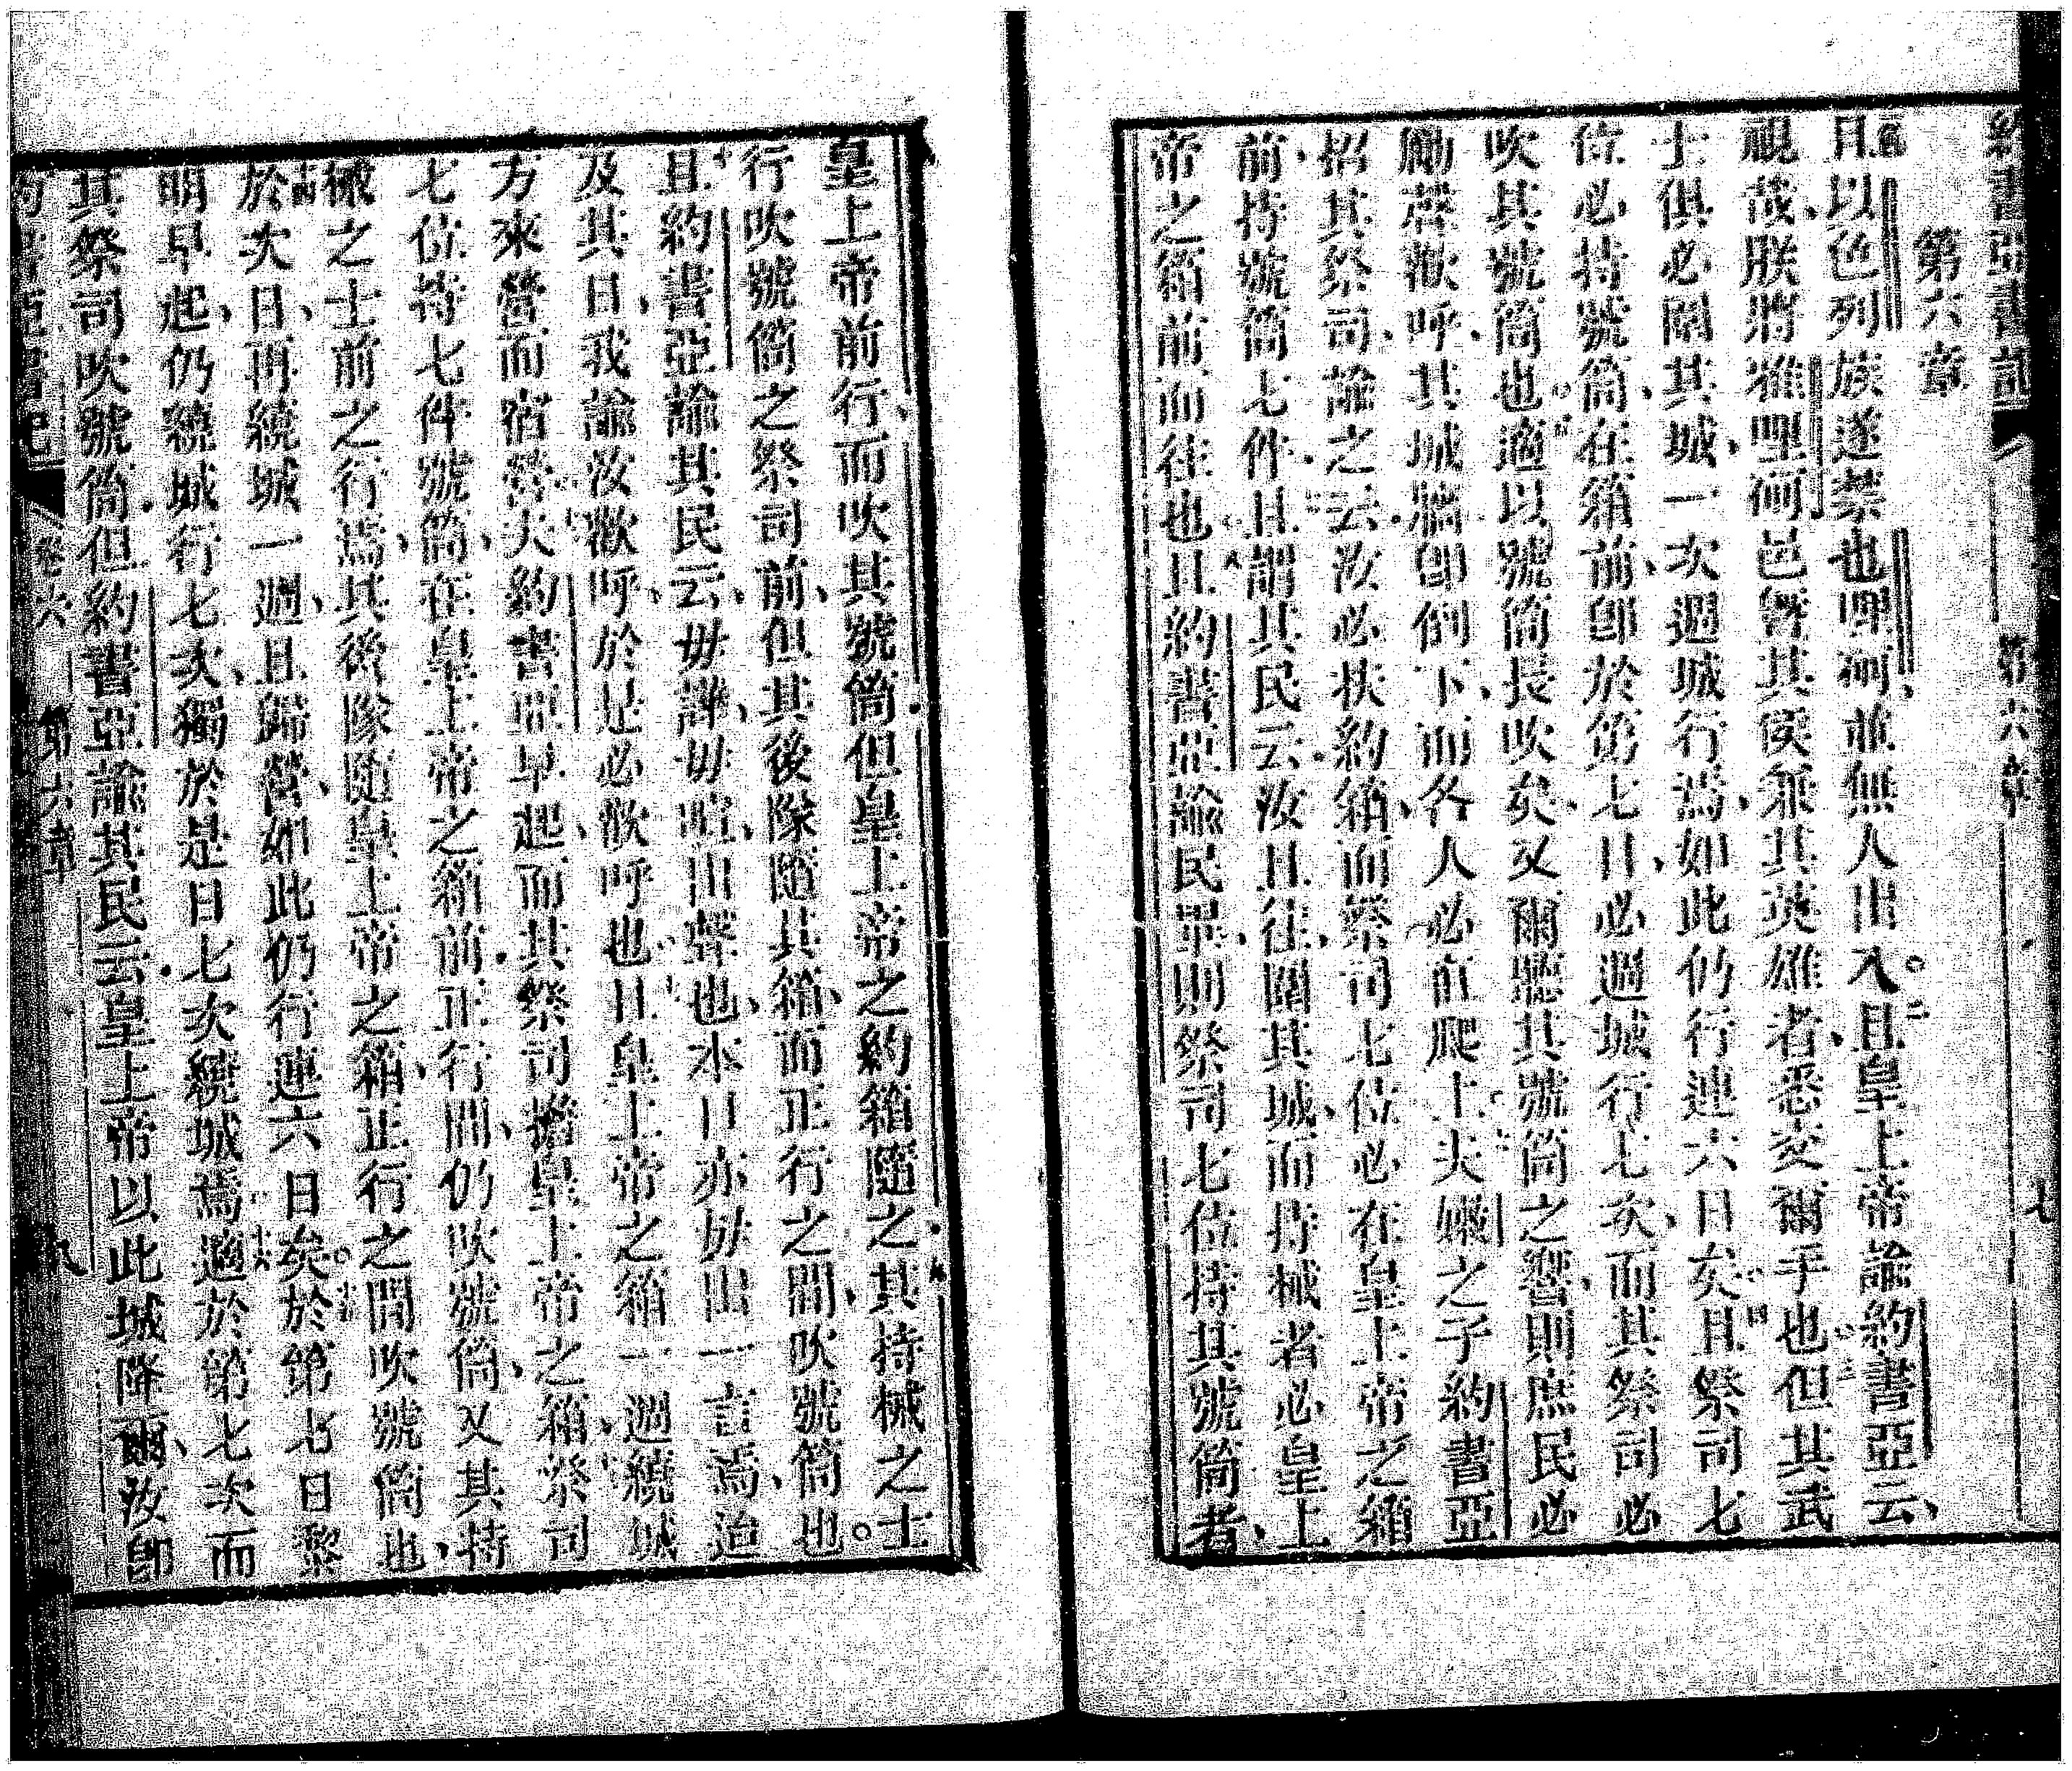 約書亞書記 第六章 七
第六章
且以色列族遂禁也哩何、並無人出入。二且皇上帝諭約書亞云、
視哉、朕將雅哩何邑曁其侯兼其英雄者、悉交爾手也三但其武
士俱必圍其城、一次週城行焉、如此仍行連六日矣四且祭司七
位必持號筒、在箱前、即於第七日、必週城行七次、而其祭司必
吹其號筒也五適以號筒長吹矣、又爾聽其號筒之響、則庶民必
勵聲歡呼、其城牆即倒下、而各人必直爬上夫嫩之子約書亞
招其祭司、諭之云、汝必扶約箱、而祭司七位必在皇上帝之箱
前、持號筒七件、且謂其民云、汝且往、圍其城、而持械者必皇上
帝之箱前而往也且約書亞諭民畢、則祭司七位持其號筒者、
皇上帝前行、而吹其號筒、但皇上帝之約箱隨之、其持械之士
行吹號筒之祭司前、但其後隊隨其箱、而正行之間、吹號筒也。
且約書亞諭其民云、毋譁、毋喧出聲也、本日亦毋出一言焉、迨
及其日、我諭汝歡呼、於是必歡呼也且皇上帝之箱一週繞城
方來營而宿營夫約書亞早起、而其祭司擔皇上帝之箱、祭司
七位持七件號筒、在皇上帝之箱前、正行間、仍吹號筒、又其持
械之士前之行焉、其後隊隨皇上帝之箱、正行之間吹號筒也、
十四於次日、再繞城一週、且歸營、如此仍行連六日矣。於第七日黎
明早起、仍繞城行七次、獨於是日七次繞城焉十六適於第七次而
其祭司吹號筒、但約書亞諭其民云、皇上帝以此城降爾、汝即
約書亞書記 卷六 第六章 八